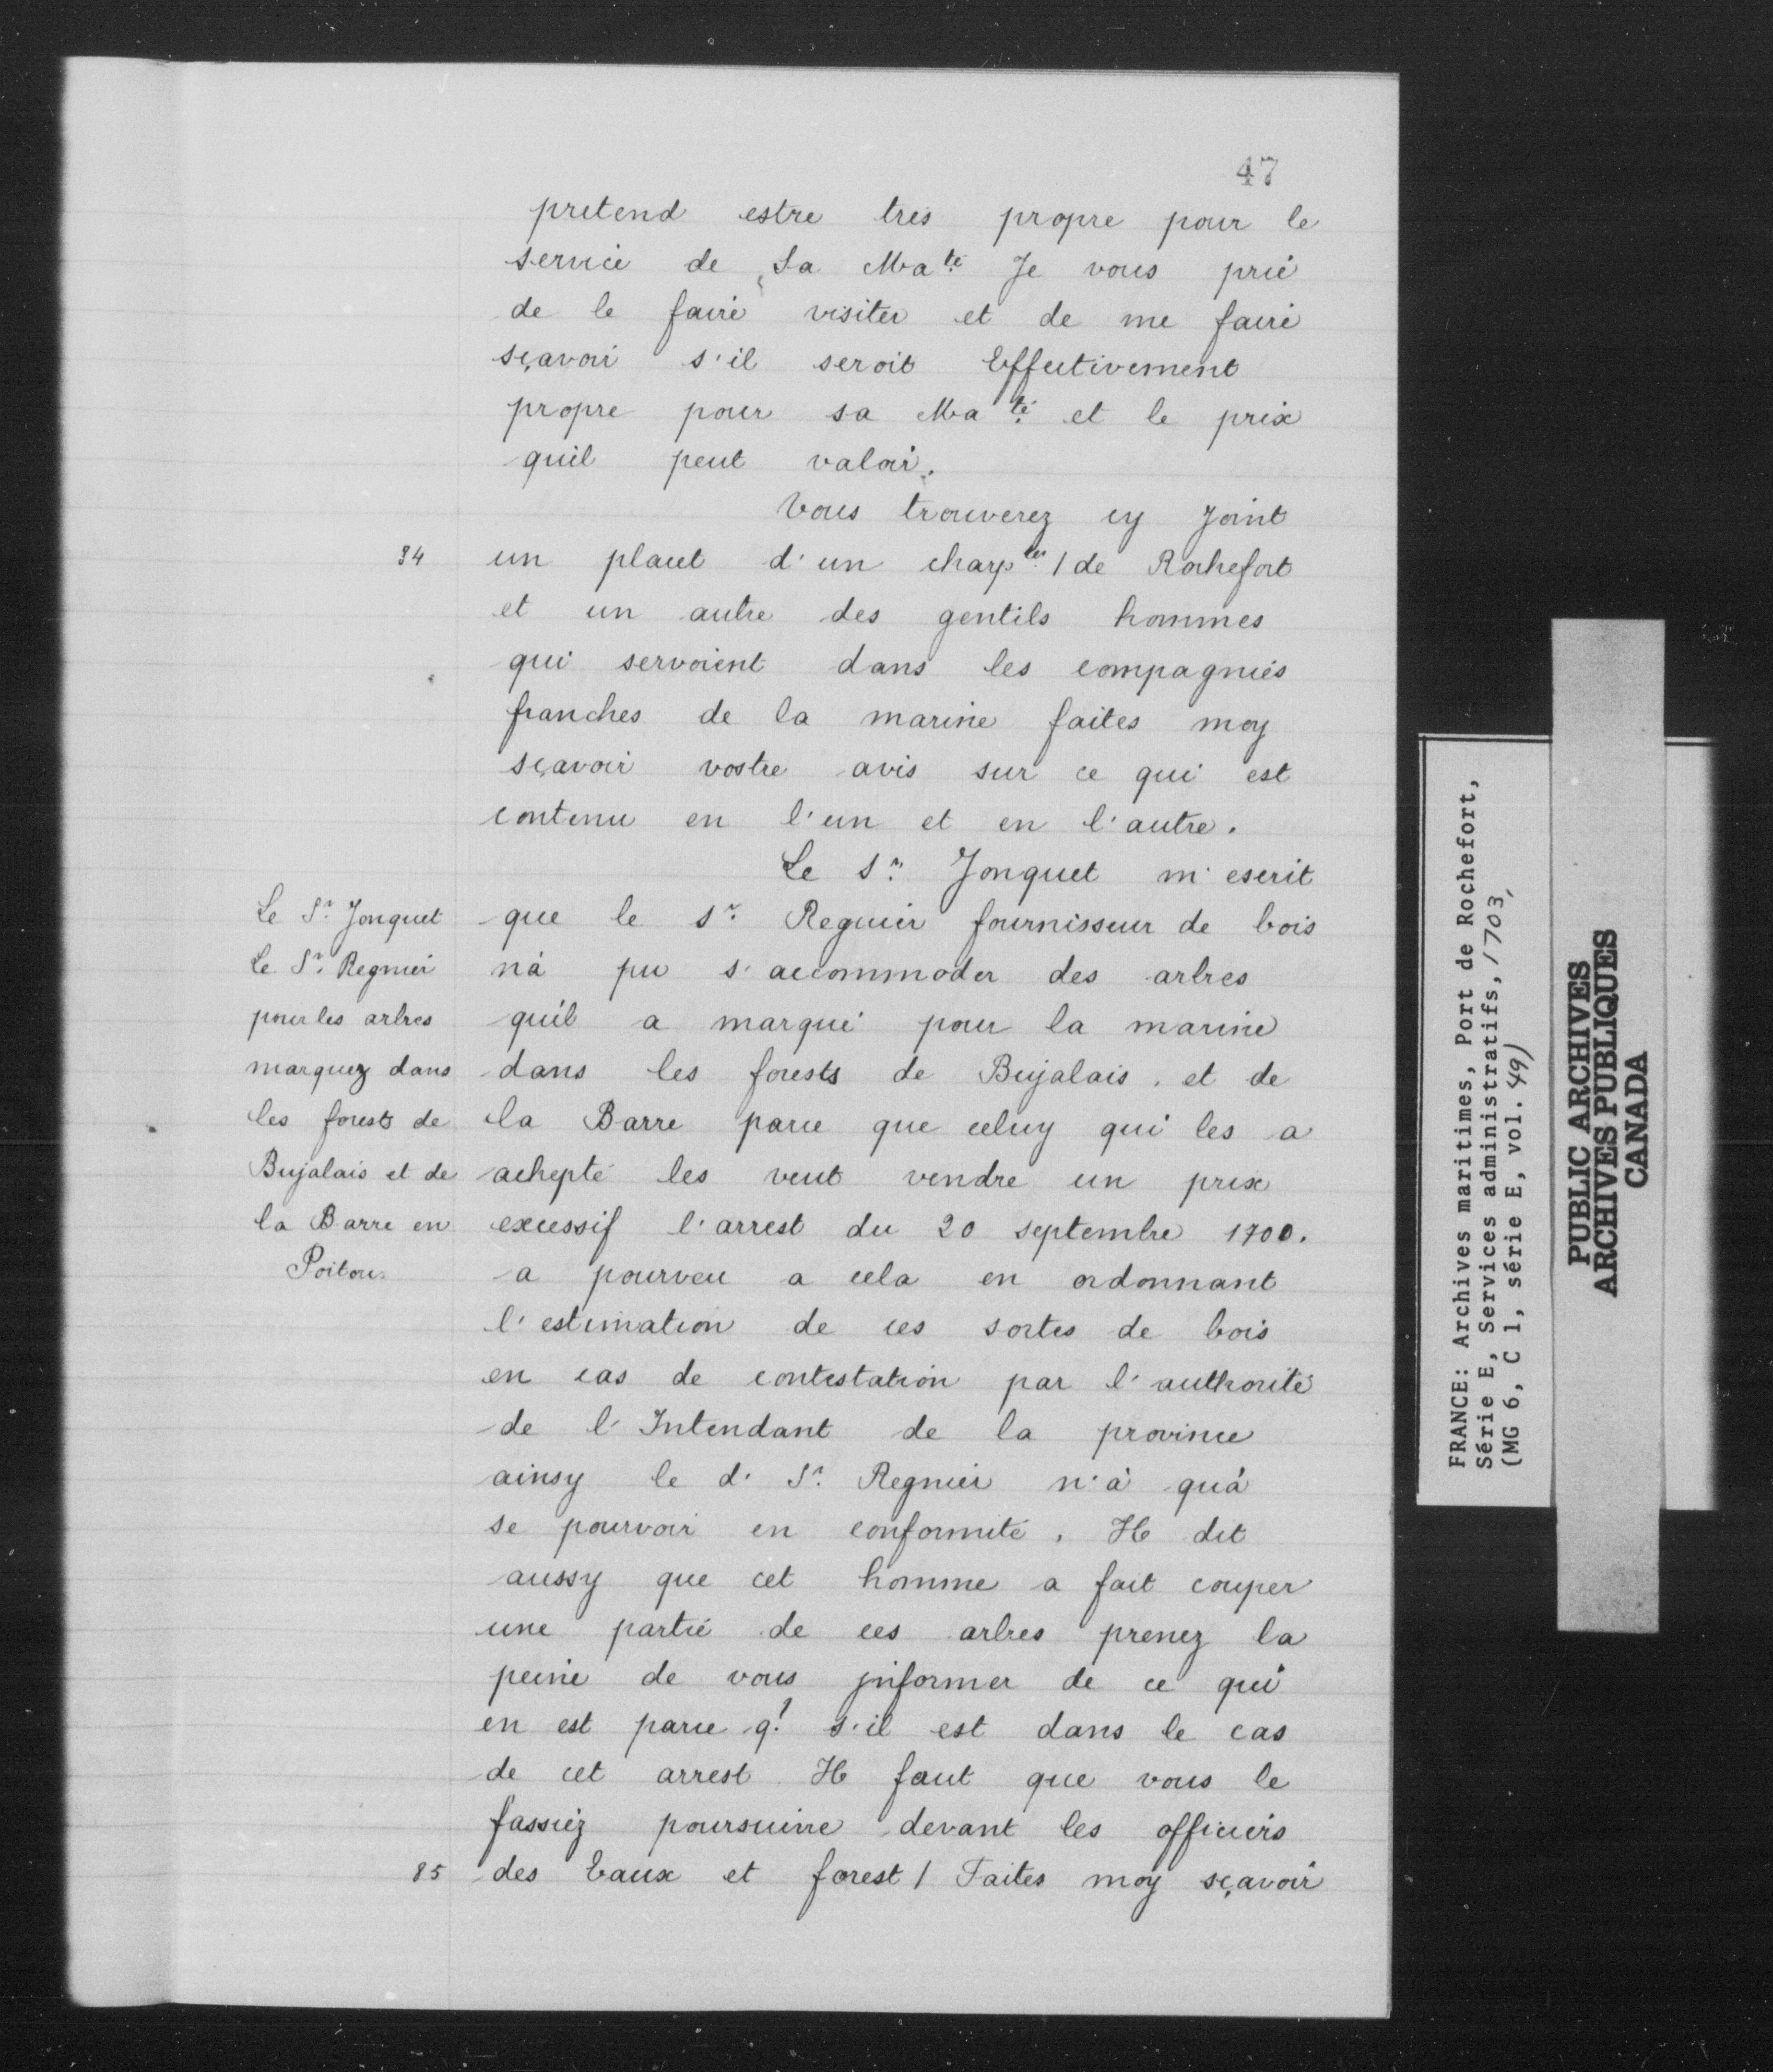 47
pretend estre tres propre pour le
service de Sa Ma.té Je vous prie
de le faire visiter et de me faire
sçavoir s'il seroit Effectivement
propre pour sa Ma.té et le prix
quil peut valoir.
Vous trouverez cy joint
84 un placet d'un charp.er / de Rochefort
et un autre des gentils hommes
qui servoient dans les compagnies
franches de la marine faites moy
sçavoir vostre avis sur ce qui est
contenu en l'un et en l'autre.
Le Sr. Jonquet m'escrit
Le Sr. Jonquet
Le Sr. Regnier
pour les arbres
marquez dans
les forests de
Bujalais et de
la Barre en
Poitou.
que le Sr. Regnier fournisseur de bois
n'a pu s'accommoder des arbres
quil a marqué pour la marine
dans les forests de Bujalais. et de
la Barre parce que celuy qui les a
achepté les veut vendre un prix
excessif l'arrest du 20 septembre 1700.
a pourveu a cela en ordonnant
l'estimation de ces sortes de bois
en cas de contestation par l'authorité
de l'Intendant de la province
ainsy le d. Sr. Regnier n'à qu'à
se pourvoir en conformité. Il dit
aussy que cet homme a fait couper
une partie de ces arbres prenez la
peine de vous jnformer de ce qui
en est parce q! s'il est dans le cas
de cet arrest. Il faut que vous le
fassiez poursuivre devant les officiers
85 des Eaux et forest / Faites moy sçavoir
FRANCE: Archives maritimes, Port de Rochefort,
Série E, Services administratifs, 1703,
(MG 6, C 1, série E, vol. 49)
PUBLIC ARCHIVES
ARCHIVES PUBLIQUES
CANADA